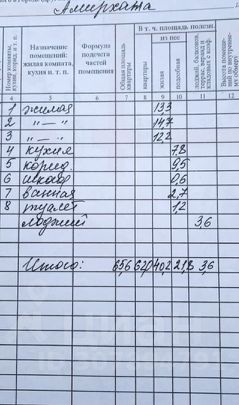 Амирхана
В т. ч. площадь полезн.
из нее
Номер комнаты, кухни и т. п.
Назначение помещений: жилая комната, кухня и т. п.
Формула подсчета частей помещения
Общая площадь квартиры
квартиры
жилая
подсобная
лоджий, балконов,
Высота помещений по внутреннему обмеру
4 5 6 7 8 9 10 11 12
1 жилая 13,3
2 "—" 14,7
3 "—" 12,2
4 кухня 7,8
5 корид. 9,5
6 шкаф 0,6
7 ванная 2,7
8 туалет 1,2
лоджия 3,6
Итого: 65,6 62,0 40,2 21,8 3,6